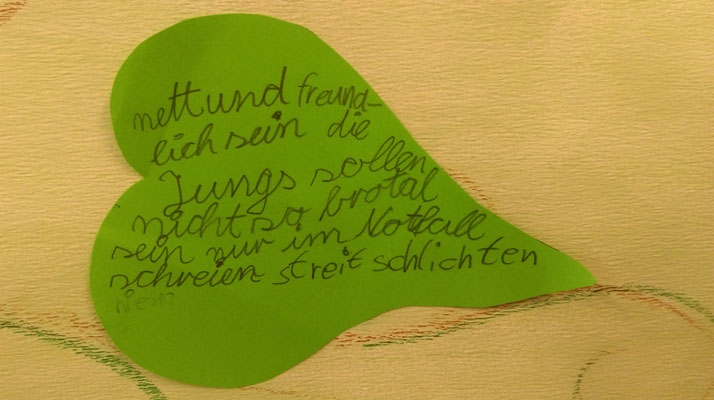 nett und freund-
lich sein die
Jungs sollen
nicht so brotal
sein nur im Notfall
schreien streit schlichten